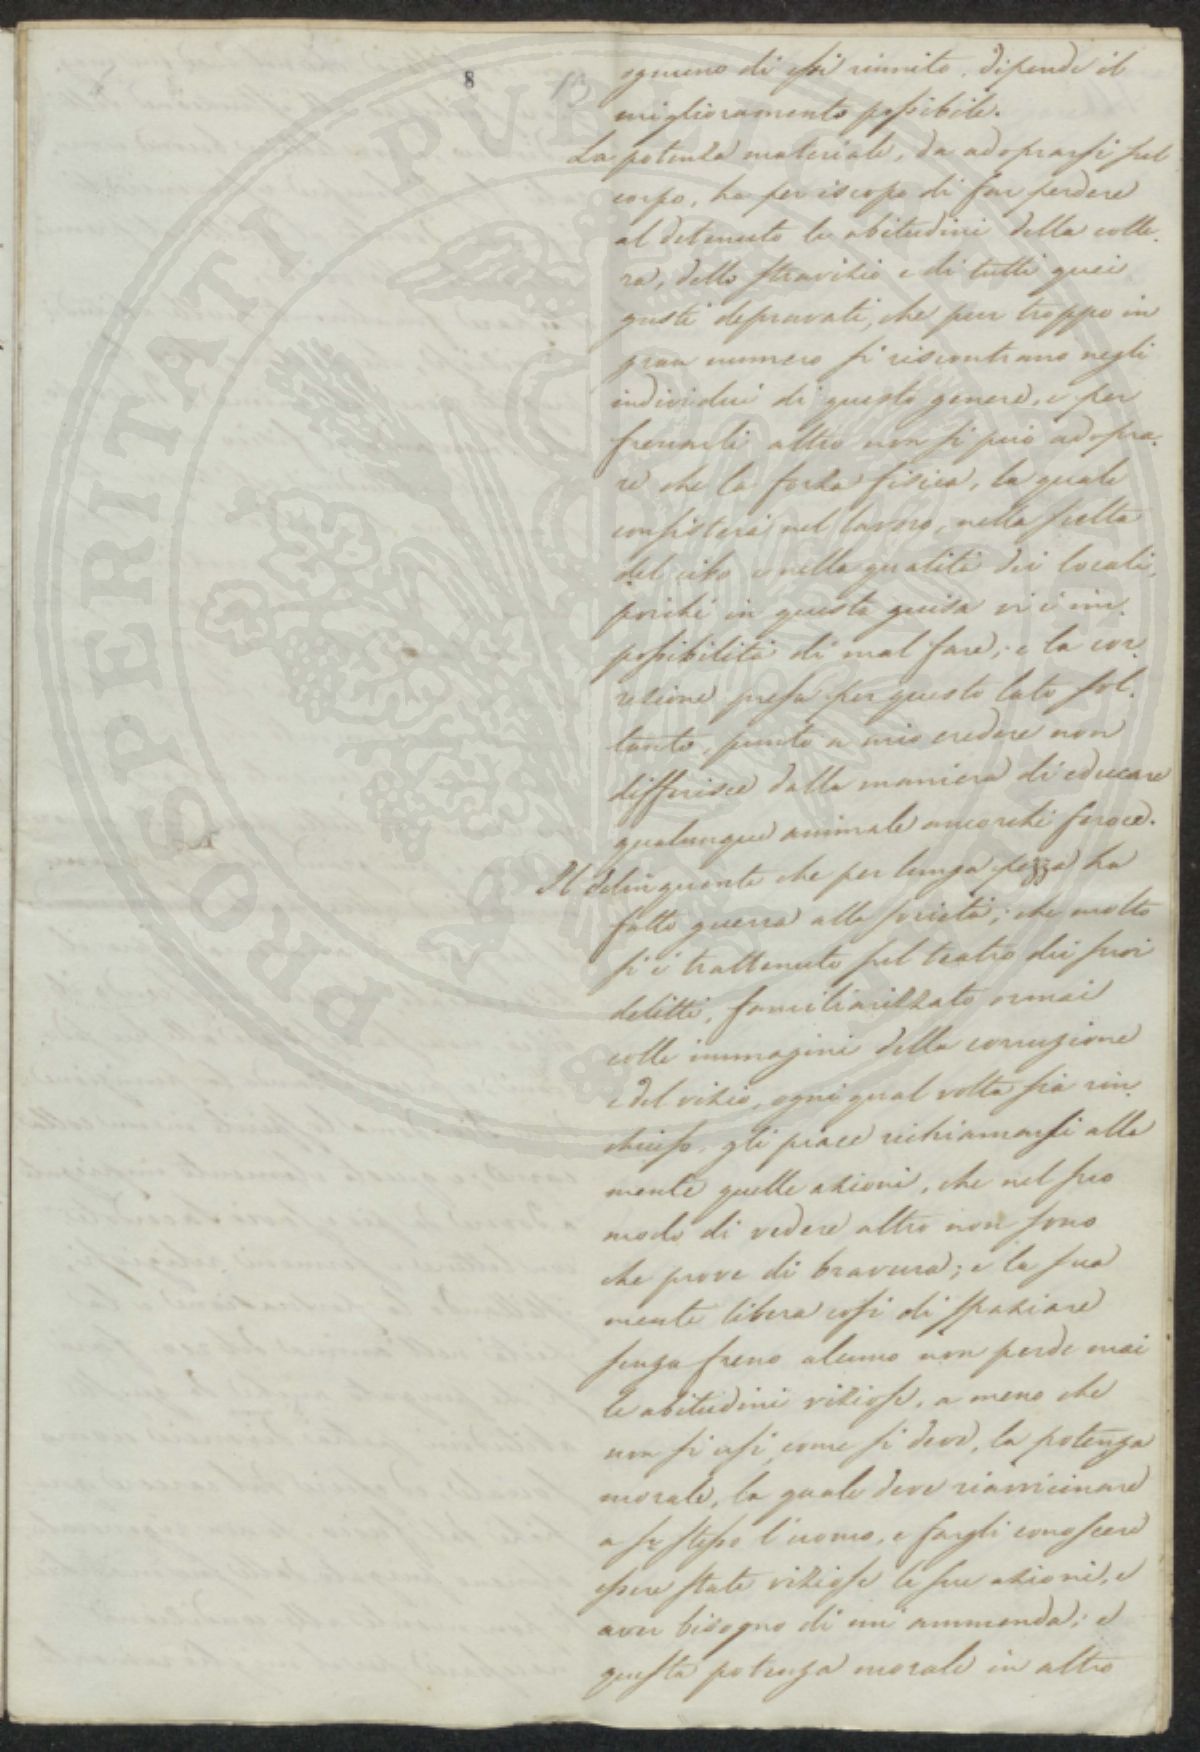 8
13
ognuno di essi riunito, dipende il
miglioramento possibile.
La potenza materiale, da adoprarsi sul
corpo, ha per iscopo di far perdere
al detenuto le abitudini della colle-
ra, dello stravizio e di tutti quei
gusti depravati, che pur troppo in
gran numero si riscontrano negli
individui di questo genere, e per
frenarli altro non si può adopra-
re che la forza fisica, la quale
consisterà nel lavoro, nella scelta
del cibo e nella qualità dei locali,
poiché in questa guisa vi è im-
possibilità di mal fare; e la cor-
rezione presa per questo lato sol-
tanto, punto a mio credere non
differisce dalla maniera di educare
qualunque animale ancorché feroce.
Il delinquente che per lunga pezza ha
fatto guerra alla società; che molto
si è trattenuto sul teatro dei suoi
delitti, familiarizzato ormai
colle immagini della corruzione
e del vizio, ogni qual volta sia rin-
chiuso, gli piace richiamarsi alla
mente quelle azioni, che nel suo
modo di vedere altro non sono
che prove di bravura; e la sua
mente libera così di spaziare
senza freno alcuno non perde mai
le abitudini viziose, a meno che
non si usi, come si deve, la potenza
morale, la quale deve riavvicinare
a se stesso l'uomo, e fargli conoscere
essere state viziose le sue azioni, e
aver bisogno di un' ammenda; e
questa potenza morale in altro
PROSPERITATI PUBLICAE